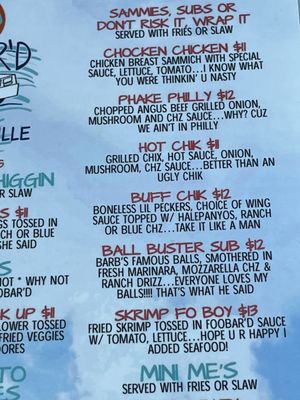 R'D
ILLE
HIGGIN
R SLAW
S $11
GS TOSSED IN
CH OR BLUE
SHE SAID
S
NOT * WHY NOT
OBAR'D
K UP $11
LOWER TOSSED
FRIED VEGGIES
DORES
TO
ES
SAMMIES, SUBS OR
DON'T RISK IT, WRAP IT
SERVED WITH FRIES OR SLAW
CHOCKEN CHICKEN $11
CHICKEN BREAST SAMMICH WITH SPECIAL
SAUCE, LETTUCE, TOMATO...I KNOW WHAT
YOU WERE THINKIN' U NASTY
PHAKE PHILLY $12
CHOPPED ANGUS BEEF GRILLED ONION,
MUSHROOM AND CHZ SAUCE...WHY? CUZ
WE AIN'T IN PHILLY
HOT CHIK $11
GRILLED CHIX, HOT SAUCE, ONION,
MUSHROOM, CHZ SAUCE...BETTER THAN AN
UGLY CHIK
BUFF CHIK $12
BONELESS LIL PECKERS, CHOICE OF WING
SAUCE TOPPED W/ HALEPANYOS, RANCH
OR BLUE CHZ...TAKE IT LIKE A MAN
BALL BUSTER SUB $12
BARB'S FAMOUS BALLS, SMOTHERED IN
FRESH MARINARA, MOZZARELLA CHZ &
RANCH DRIZZ...EVERYONE LOVES MY
BALLS!!!! THAT'S WHAT HE SAID
SKRIMP FO BOY $13
FRIED SKRIMP TOSSED IN FOOBAR'D SAUCE
W/ TOMATO, LETTUCE...HOPE U R HAPPY I
ADDED SEAFOOD!
MINI ME'S
SERVED WITH FRIES OR SLAW